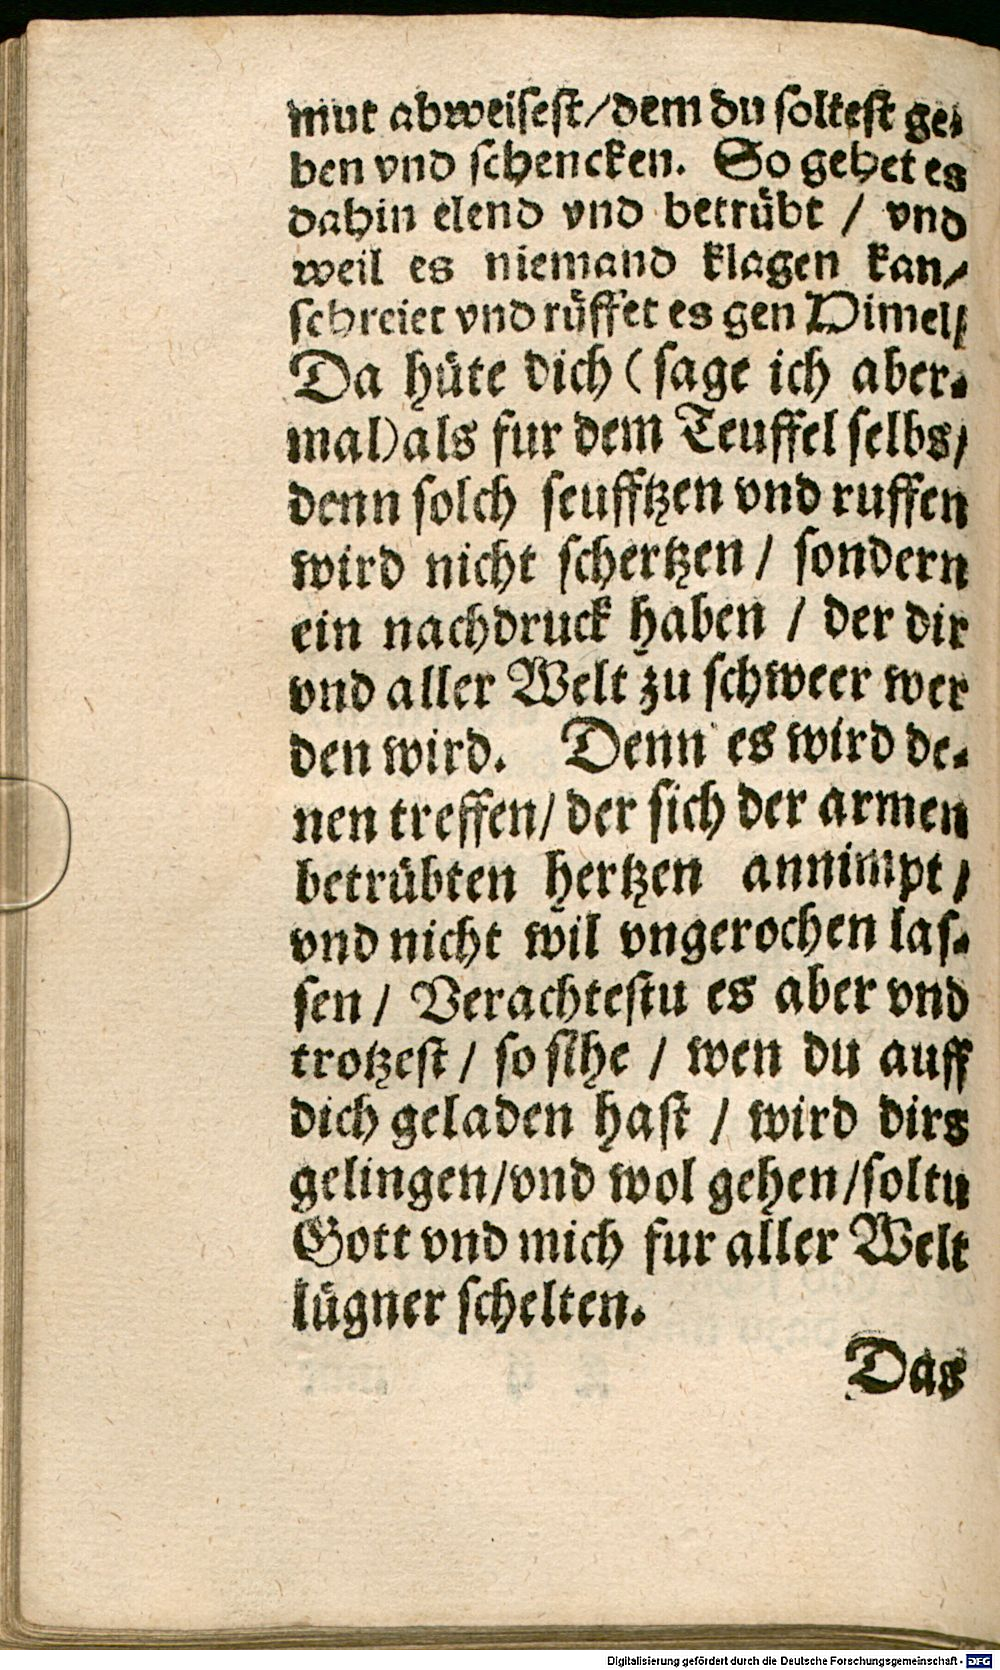 mut abweisest/dem du soltest ge-
ben vnd schencken. So gehet es
dahin elend vnd betrübt / vnd
weil es niemand klagen kan/
schreiet vnd rüffet es gen Himel/
Da hüte dich (sage ich aber-
mal) als fur dem Teuffel selbs/
denn solch seufftzen vnd ruffen
wird nicht schertzen / sondern
ein nachdruck haben / der dir
vnd aller Welt zu schweer wer
den wird. Denn es wird de-
nen treffen/ der sich der armen
betrübten hertzen annimpt /
vnd nicht wil vngerochen las-
sen / Verachtestu es aber vnd
trotzest / so sihe / wen du auff
dich geladen hast / wird dirs
gelingen/vnd wol gehen/soltu
Gott vnd mich fur aller Welt
lügner schelten.
Das
Digitalisierung gefördert durch die Deutsche Forschungsgemeinschaft - DFG